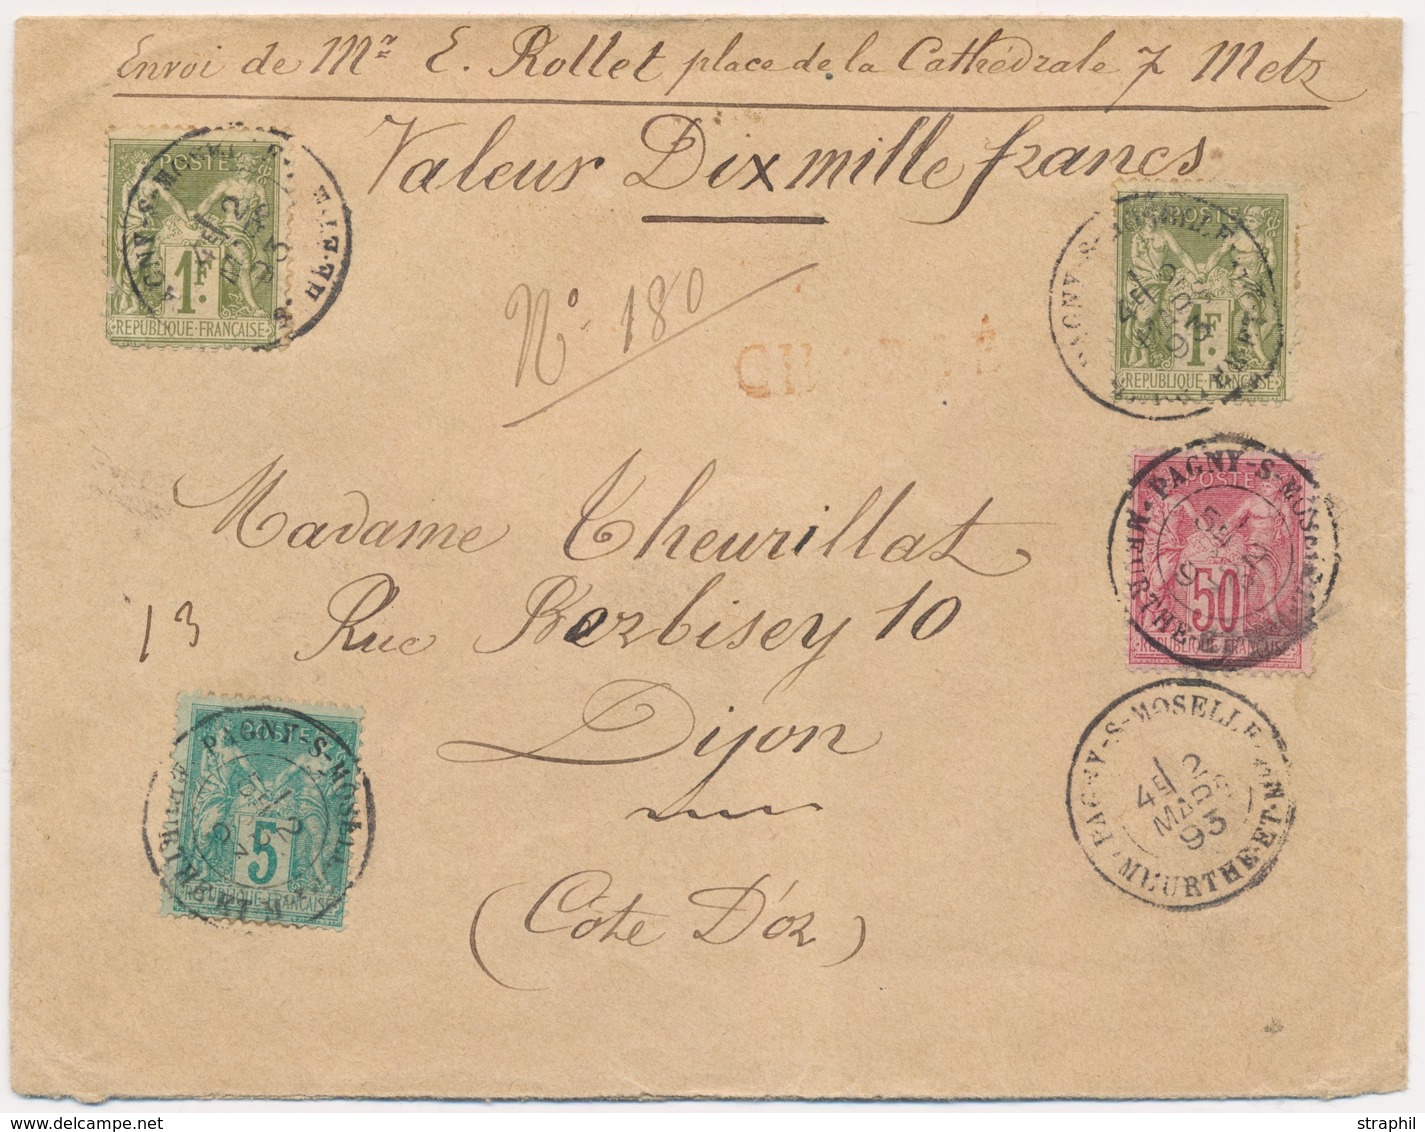 Envoi de Mr E. Rollet place de la Cathédrale 7 Metz
Valeur Dix mille francs
POSTE
1F.
REPUBLIQUE·FRANÇAISE
2
93
POSTE
1F.
REPUBLIQUE·FRANÇAISE
No 180
Madame Theurillat
13
Rue Berbisey 10
Dijon
(Côte D'or)
PAGNY-S-MOSELLE
MEURTHE
POSTE
50
REPUBLIQUE FRANÇAISE
PAGNY-S-MOSELLE
5
REPUBLIQUE FRANÇAISE
PAGNY-S-MOSELLE
4E/2
MARS
93
MEURTHE-ET-M
straphil